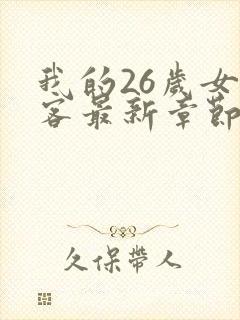 我的26歲女
客最新章節
久保帶人